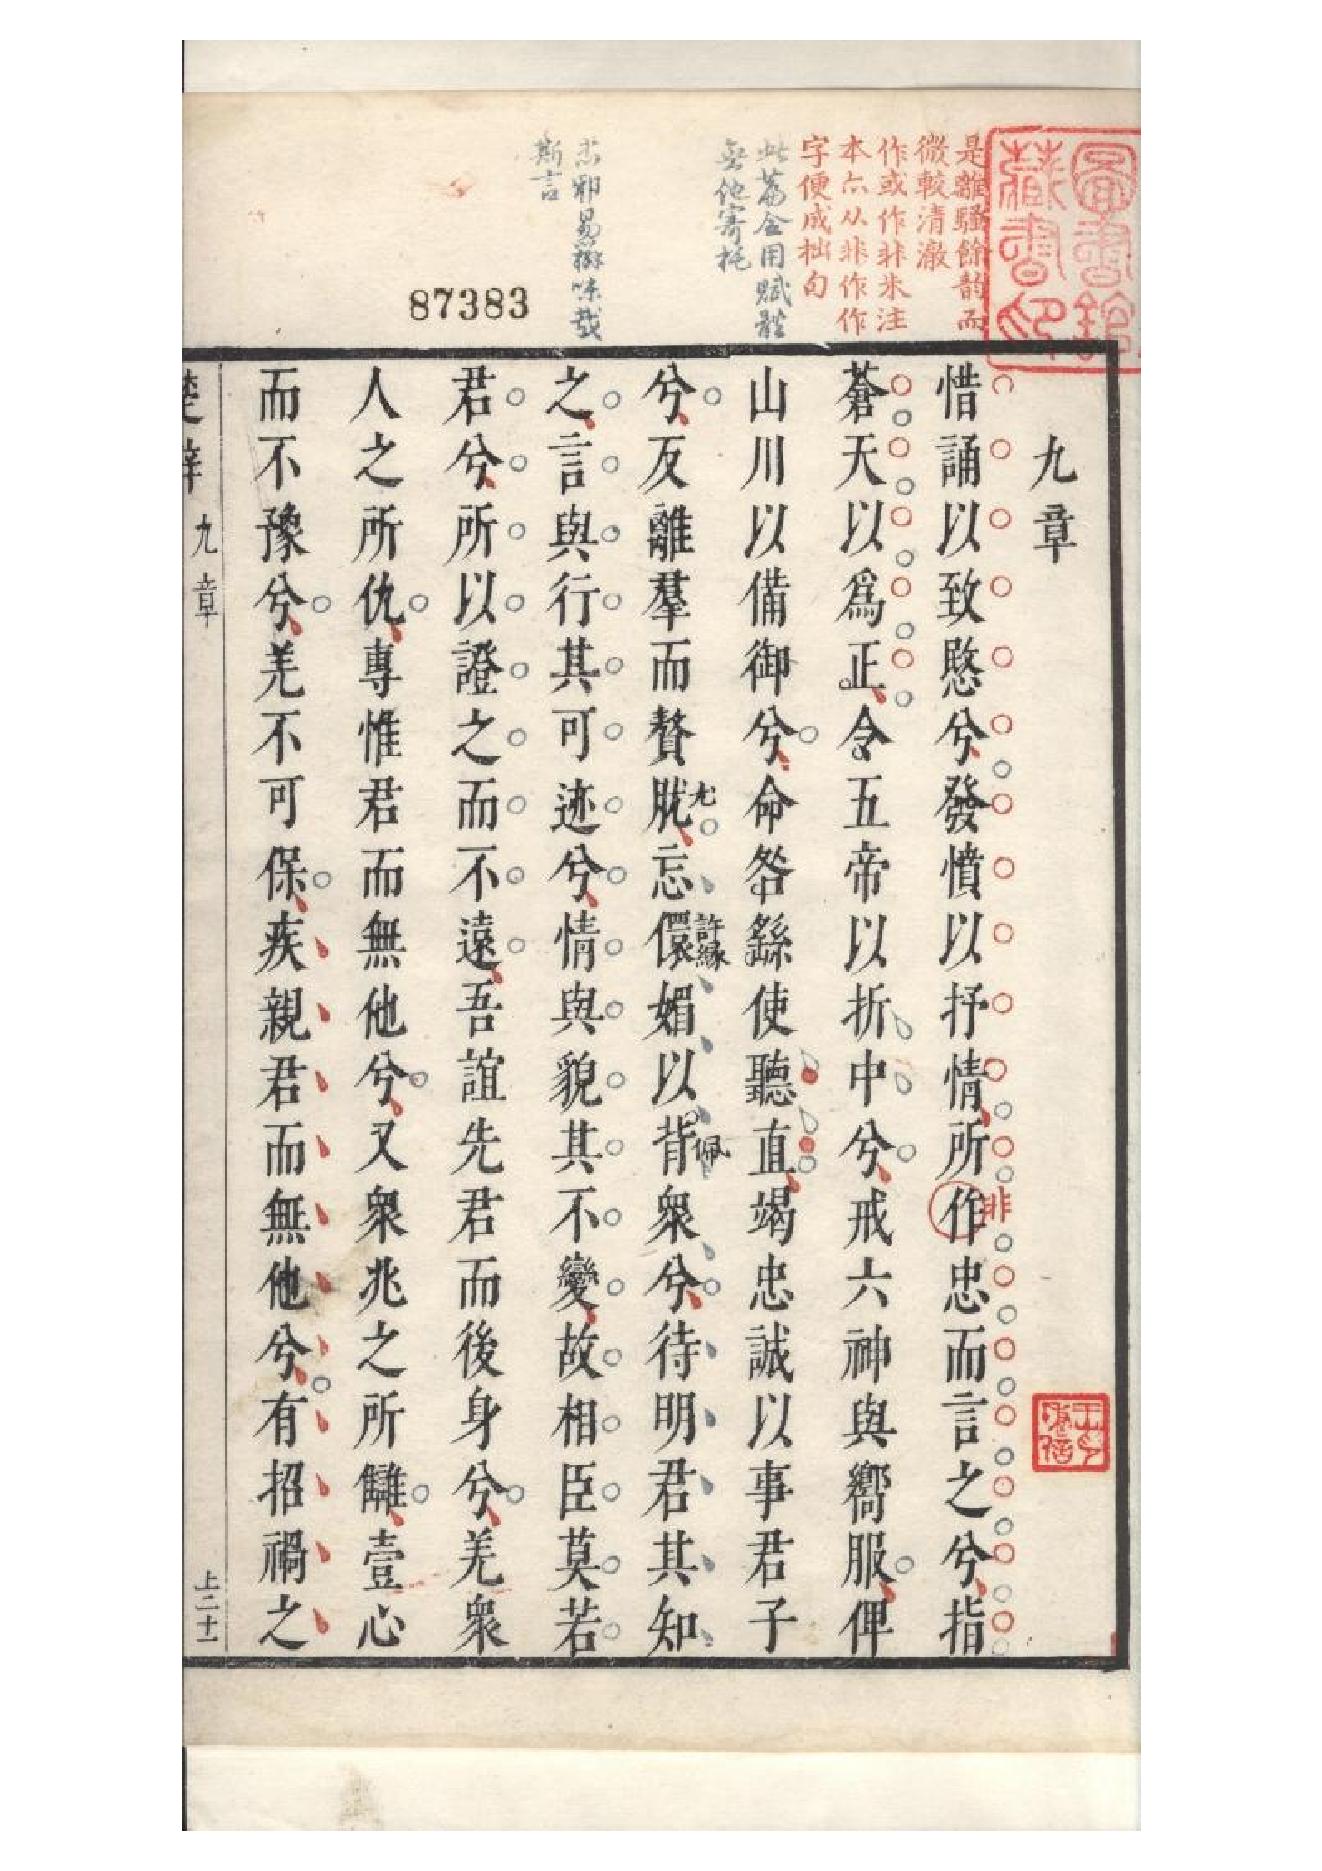 是離騷餘韵而
微較清澈
作或作非朱注
本亦从非作作
字便成拙句
此篇全用賦體
無他寄托
忠邪易辨味哉
斯言
87383
圖書館
藏書印
九章
惜誦以致愍兮發憤以抒情所作非忠而言之兮指
蒼天以爲正令五帝以折中兮戒六神與嚮服俾
山川以備御兮命咎繇使聽直竭忠誠以事君子
兮反離羣而贅肬尤忘儇許緣媚以背佩衆兮待明君其知
之言與行其可迹兮情與貌其不變故相臣莫若
君兮所以證之而不遠吾誼先君而後身兮羌衆
人之所仇專惟君而無他兮又衆兆之所讎壹心
而不豫兮羌不可保疾親君而無他兮有招禍之
楚辭 九章 上二十一